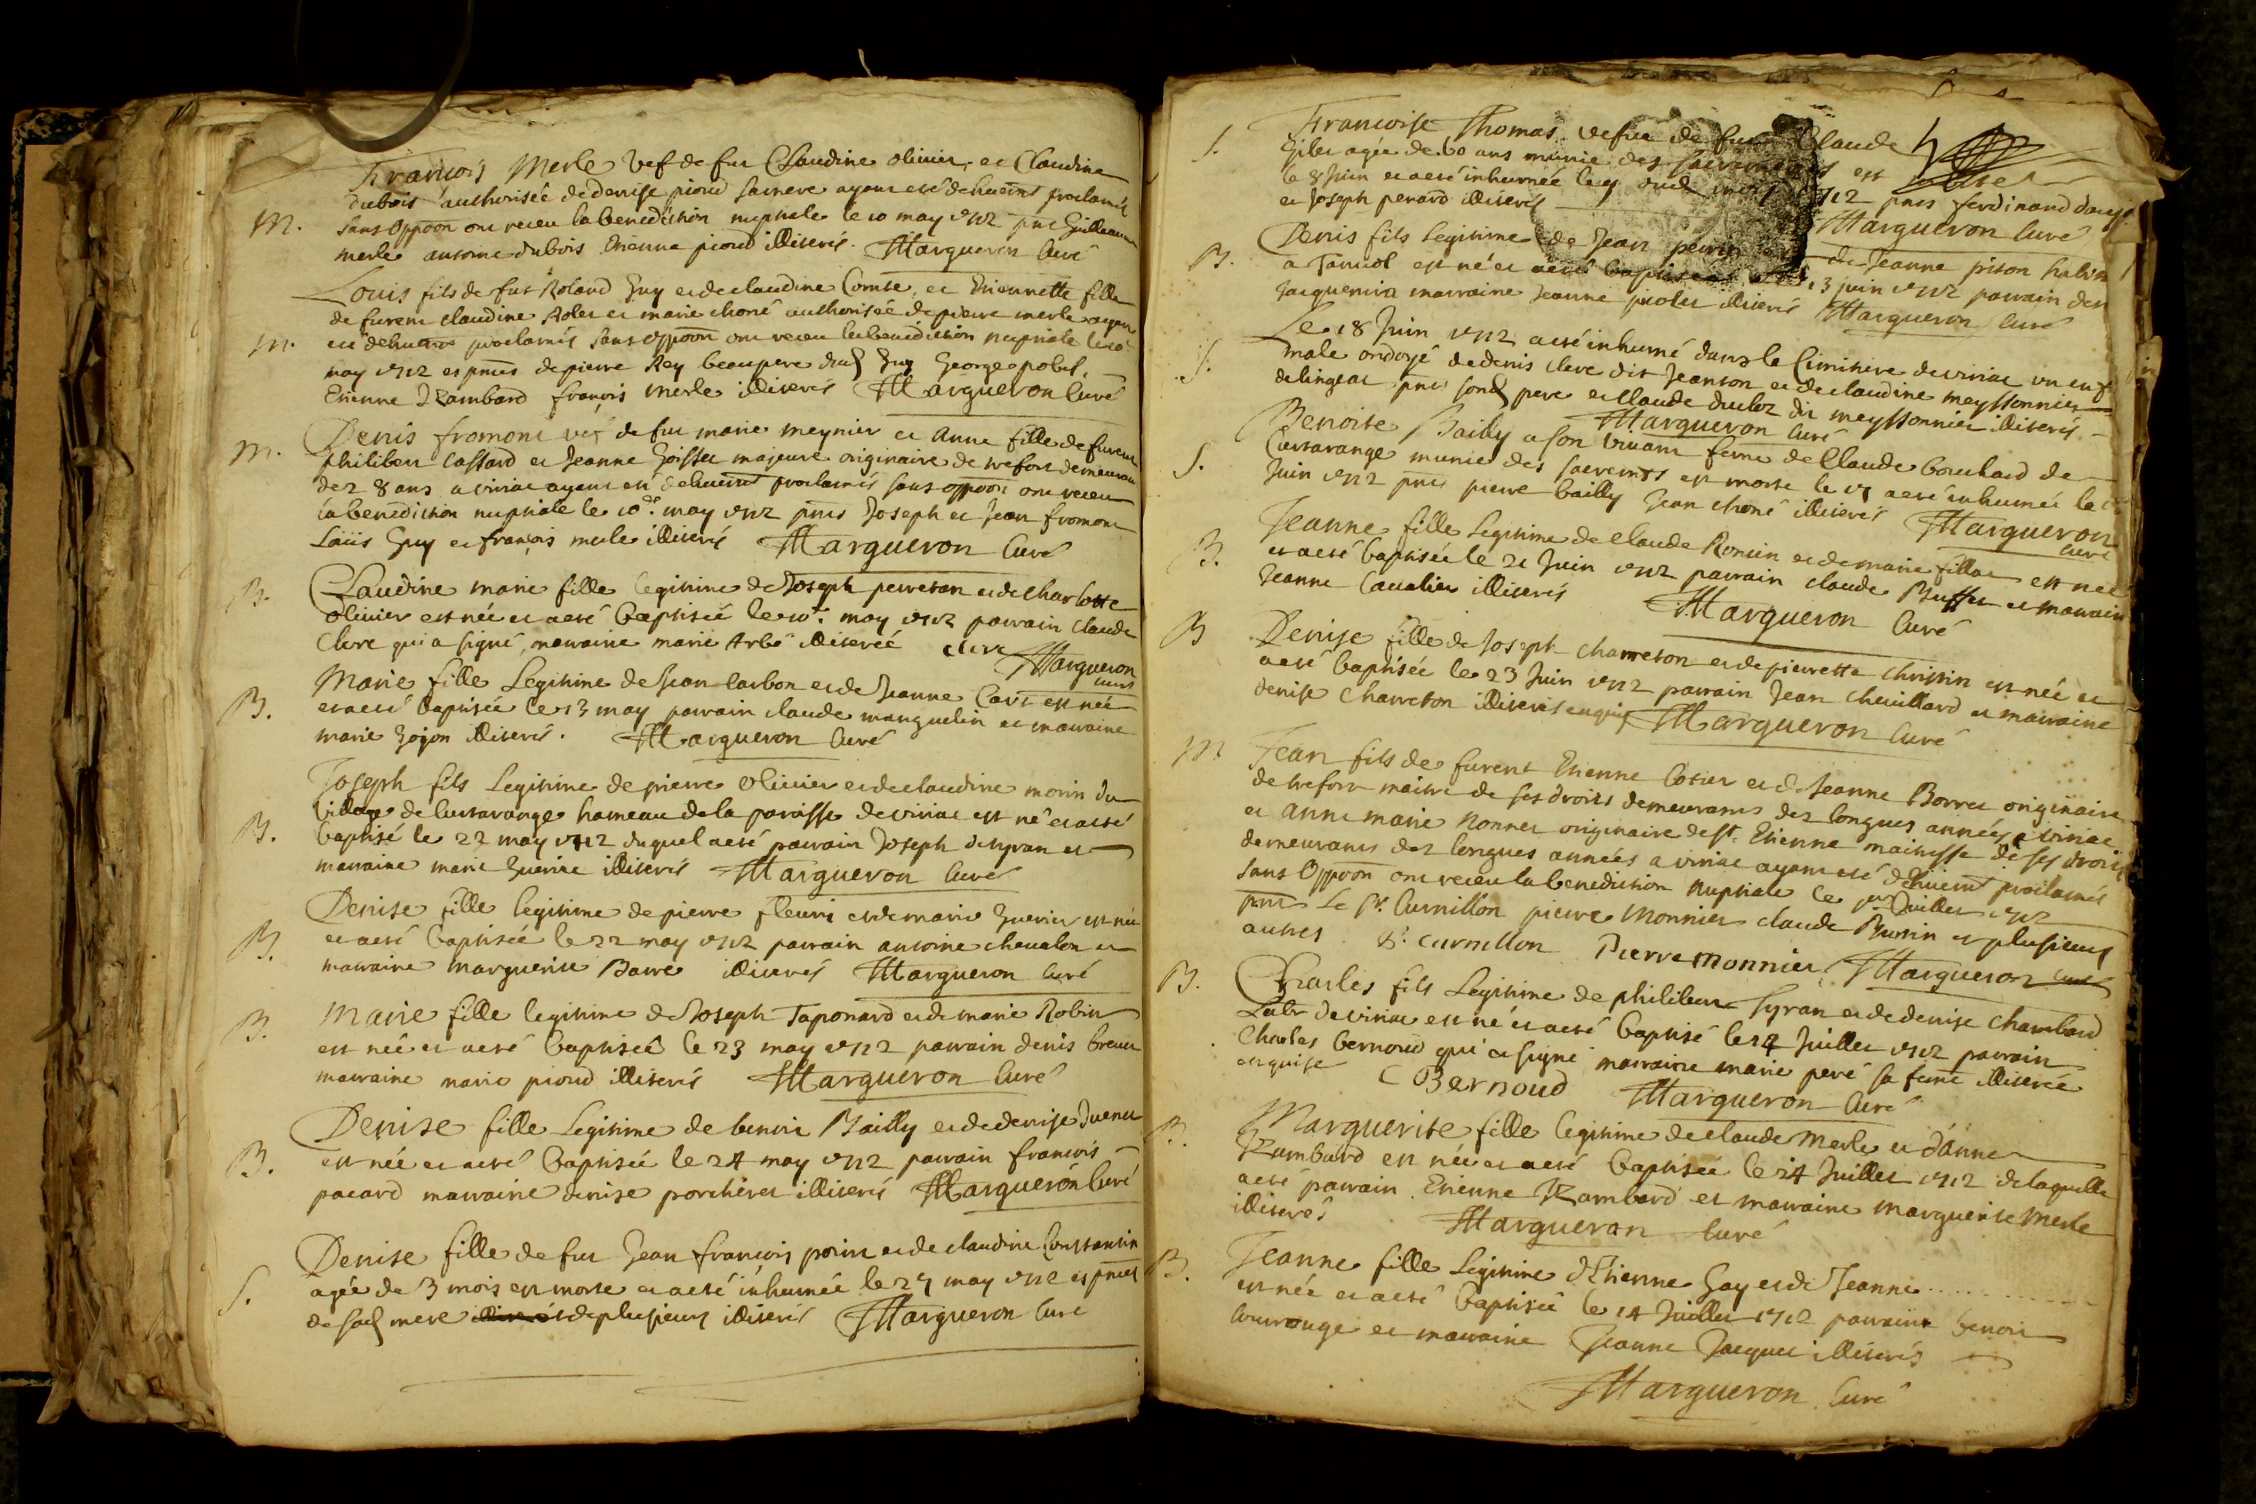 François Merle vef de fue Claudine olivier et Claudine
dubois authorisée de denise pioud sa mere ayant esté dehuemt proclamés
M. sans Oppoon ont receu la benediction nuptiale le 10 may 1712 pnt Guillaume
merle antoine dubois Etienne pioud illiterés. Margueron Curé
Louis fils de fut Roland Guy et de claudine Comte, et Etiennette fille
de furent claudine Rolet et marie choné authorisée de pierre merle ayant
M. esté dehuemt proclamés sans oppoon ont receu la benediction nuptiale le 10
may 1712 es pnces de pierre Rey beaupere dud Guy George pobel,
Etienne Rambard françois merle illiterés Margueron Curé
M. Denis fromont vef de fue marie meynier et Anne fille de furent
philibert Cassard et Jeanne Goisset majeure originaire de trefort demeurant
dez 8 ans a viriat ayant esté dehuemt proclamés sans oppoon ont receu
la benediction nuptiale le 10e may 1712 pnts Joseph et Jean fromont
Loüis Guy et françois merle illiterés Margueron Curé
B. Claudine marie fille legitime de Joseph perreton et de charlotte
olivier est née et a eté baptisée le 10e may 1712 parrain claude
Clere qui a signé, marraine marie Arbó illiterée clere Margueron
curé
Marie fille Legitime de Jean Carbon et de Jeanne Cart est née
B. et a eté baptisée le 13 may parrain claude manguelin et marraine
marie Gojon illiterés. Margueron Curé
Joseph fils Legitime de pierre Olivier et de claudine morin du
village de Curtarange hameau de la paroisse de viriat est né et a eté
B. baptisé le 22 may 1712 duquel a eté parrain Joseph
marraine marie Guerin illiterés Margueron Curé
Denise fille legitime de pierre fleuri et de marie Guerin est née
B. et a eté baptisée le 22 may 1712 parrain antoine chevalon et
marraine marguerite Barre illiterés Margueron Curé
B. Marie fille legitime de Joseph Taponard et de marie Robin
est née et a eté baptisée le 23 may 1712 parrain denis
marraine marie pioud illiterés Margueron Curé
Denise fille Legitime de benoit Bailly et de denise
B. est née et a eté baptisée le 24 may 1712 parrain françois
pacard marraine denise porcheret illiterés Margueron Curé
Denise fille de fut Jean françois poin et de claudine Constantin
S. agée de 3 mois est morte et a eté inhumée le 27 may 1712 es pnces
de sad mere et de plusieurs illiterés Margueron Curé
S. Francoise Thomas vefue de fut Claude
Gibet agée de 60 ans munie des sacremens est
le 8 Juin et a eté inhumée le 9 dud mois 1712 pnts ferdinand
et Joseph perard illiterés Margueron Curé
B. Denis fils legitime de Jean perrin de Jeanne piton
a est né et a eté baptisé 13 juin 1712 parrain
marraine Jeanne picolet illiterés Margueron Curé
Le 18 Juin 1712 a eté inhumé dans le Cimitiere de viriat un
S. male ondoyé de denis clere dit Jeanton et de claudine meyssonnier
de lingeat pnts sond pere et Claude ducloz dit meyssonnier illiterés.
Margueron Curé
Benoite Bailly a son vivant feme de Claude bouchard de
S. Curtarange munie des sacremts est morte le 17 a eté inhumée le
Juin 1712 pnts pierre bailly Jean choné illiterés Margueron
curé
Jeanne fille Legitime de Claude Roncin et de marie fillat est née
B. et a eté baptisée le 21 Juin 1712 parrain claude Buffet et marraine
Jeanne Cavalier illiterés Margueron Curé
B Denise fille de Joseph charreton et de pierrette chrissin est née et
a eté baptisée le 23 Juin 1712 parrain Jean chevillard et marraine
denise charreton illiterés enquis Margueron Curé
M Jean fils de furent Etienne Cotier et de Jeanne Borret originaire
de trefort maitre de ses droits demeurants dez longues années a viriat
et Anne marie nonnet originaire de St. Etienne maitresse de ses droits
demeurants dez longues années a viriat ayant eté dehuemt proclamés
sans Oppoon ont receu la benediction nuptiale le 1er Juillet 1712
pnts Le Sr. Curnillon pierre monnier claude Burtin et plusieurs
autres Sr. curnillon Pierre monnier Margueron curé
B. Charles fils Legitime de philibert Tyran et de denise Chambard
Labr de viriat est né et a eté baptisé le 14 Juillet 1712 parrain
Charles bernoud qui a signé marraine marie peré sa feme illiterée
enquise C Bernoud Margueron Curé
B. Marguerite fille legitime de claude Merle et d'anne
Rambard est née et a eté baptisée le 14 Juillet 1712 de laquelle
a eté parrain Etienne Rambard et marraine marguerite merle
illiterés Margueron Curé
B. Jeanne fille Legitime d'Etienne Gay et de Jeanne ............
est née et a eté baptisée le 14 Juillet 1712 parrain benoit
Courrouge et marraine Jeanne Jacquet illiterés
Margueron Curé